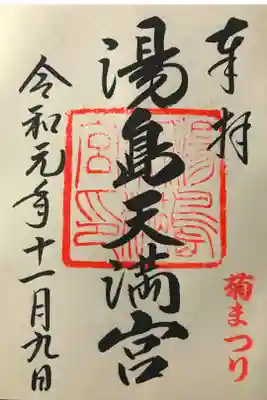 奉拝
湯島天満宮
令和元年十一月九日
菊まつり